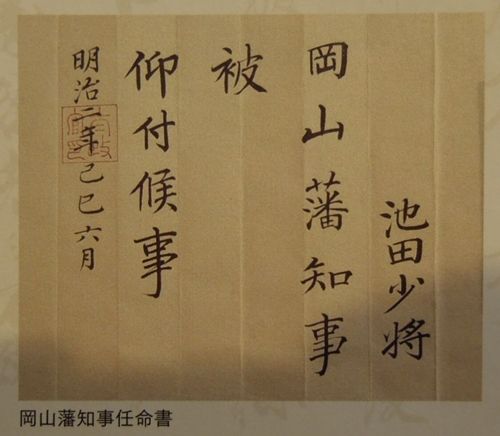 池田少将
岡山藩知事
被
仰付候事
明治二年己巳六月
岡山藩知事任命書